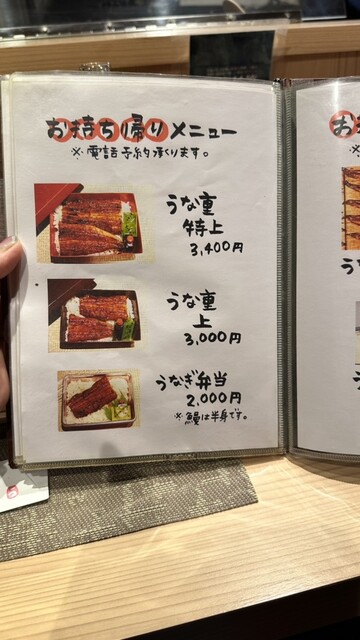 お持ち帰りメニュー
※電話予約承ります。
うな重
特上
3,400円
うな重
上
3,000円
うなぎ弁当
2,000円
※鰻は半身です。
お
※
う